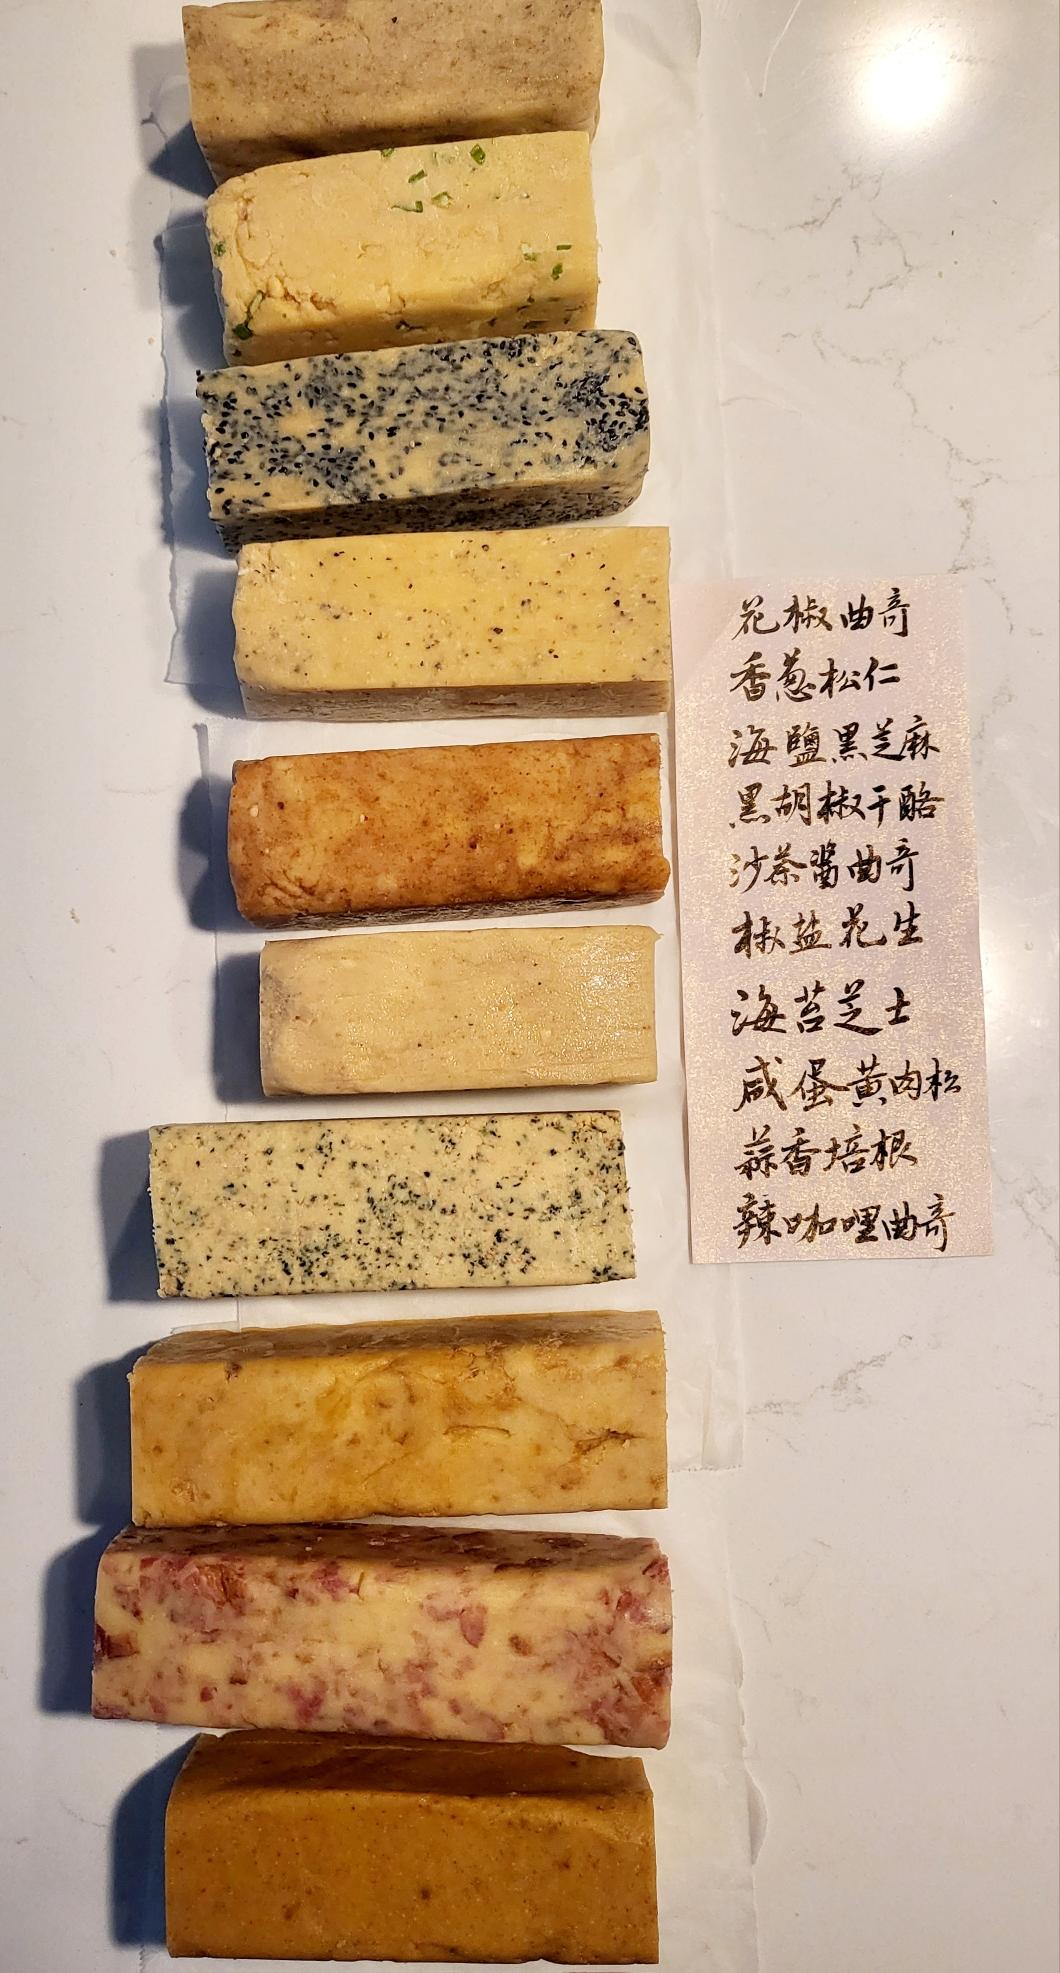 花椒曲奇
香葱松仁
海鹽黑芝麻
黑胡椒干酪
沙茶醬曲奇
椒盐花生
海苔芝士
咸蛋黄肉松
蒜香培根
辣咖哩曲奇